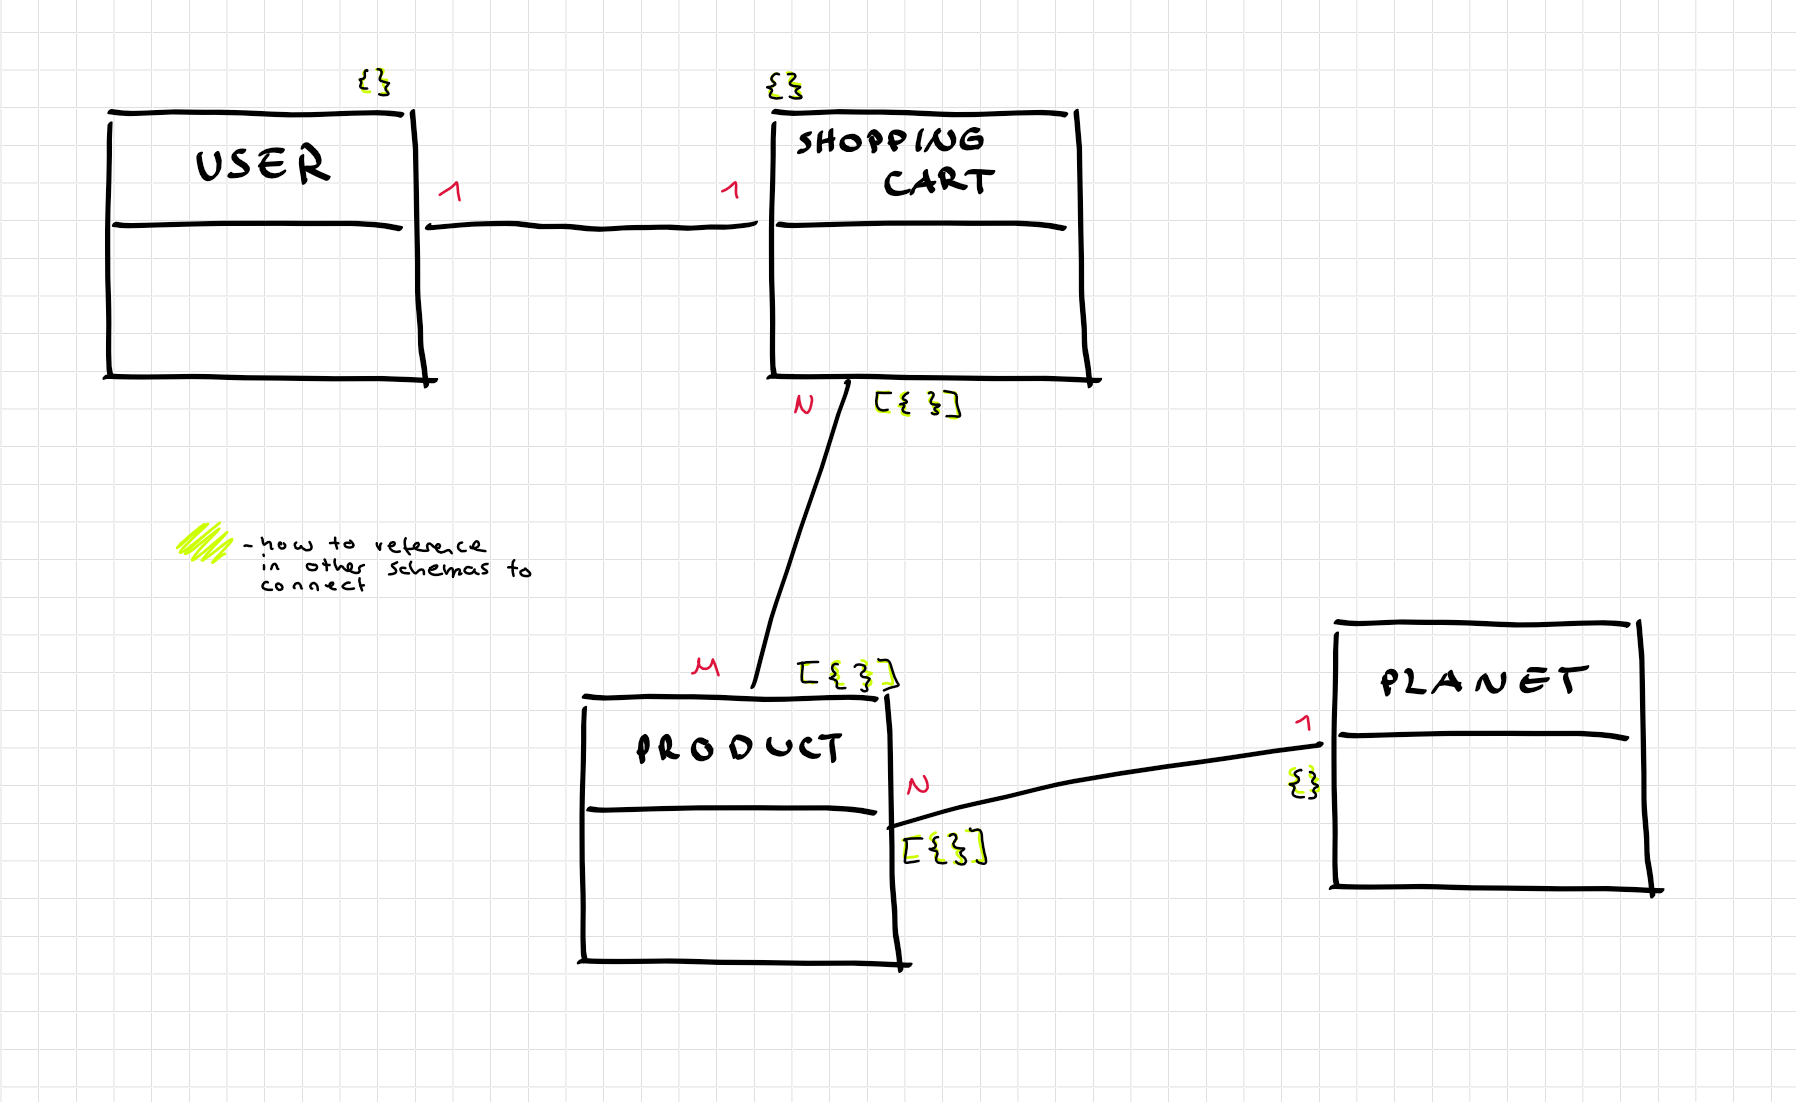 {}
{}
USER
SHOPPING
CART
1
1
N
[{ }]
- how to reference
in other schemas to
connect
M
[{ }]
PRODUCT
PLANET
1
N
{}
[{}]